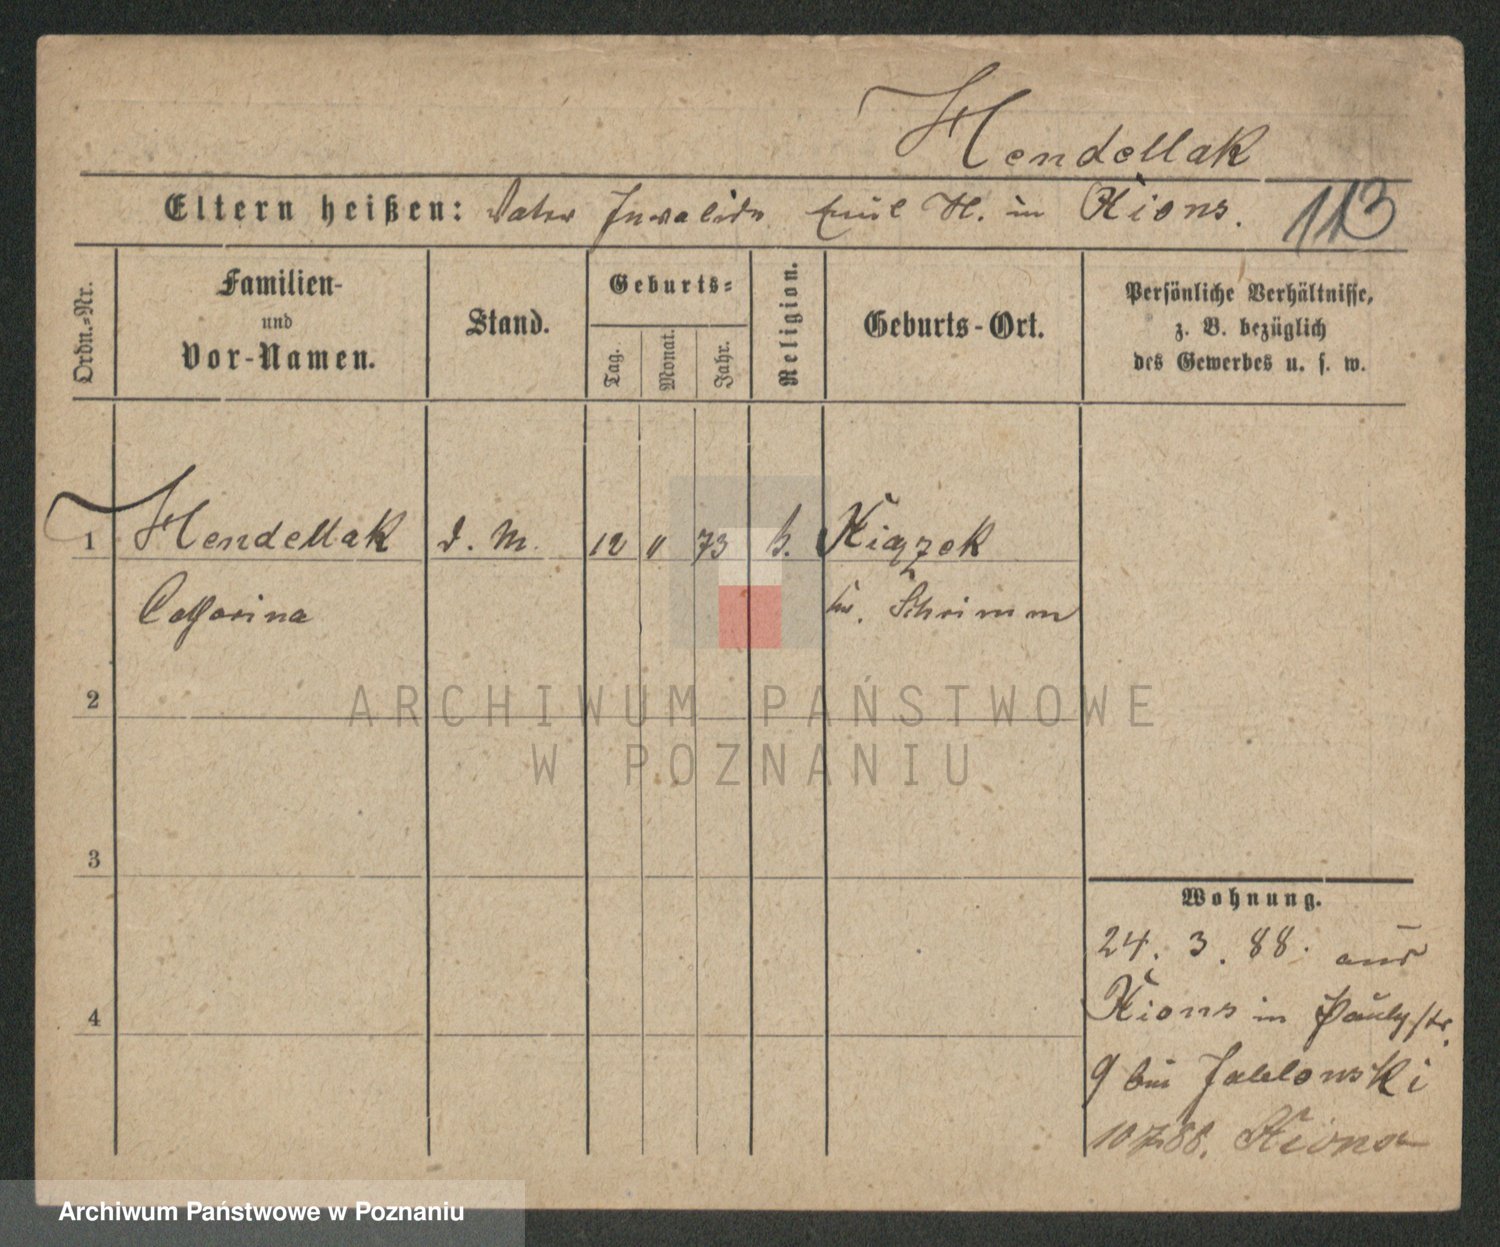 Hendellak
Eltern heißen: Vater Invalide Emil H. in Xions.
113
Ordn.-Nr.
Familien-
und
Vor-Namen.
Stand.
Geburts-
Tag.
Monat.
Jahr.
Religion.
Geburts-Ort.
Persönliche Verhältnisse,
z. B. bezüglich
des Gewerbes u. s. w.
1 Hendellak d. M. 12 11 73 k. Xiązek
Catharina Kr. Schrimm
2
3
4
Wohnung.
24. 3. 88. aus
Xions in Paulystr.
9 bei Jablonski
10 7 88. Xions
ARCHIWUM PAŃSTWOWE
W POZNANIU
Archiwum Państwowe w Poznaniu